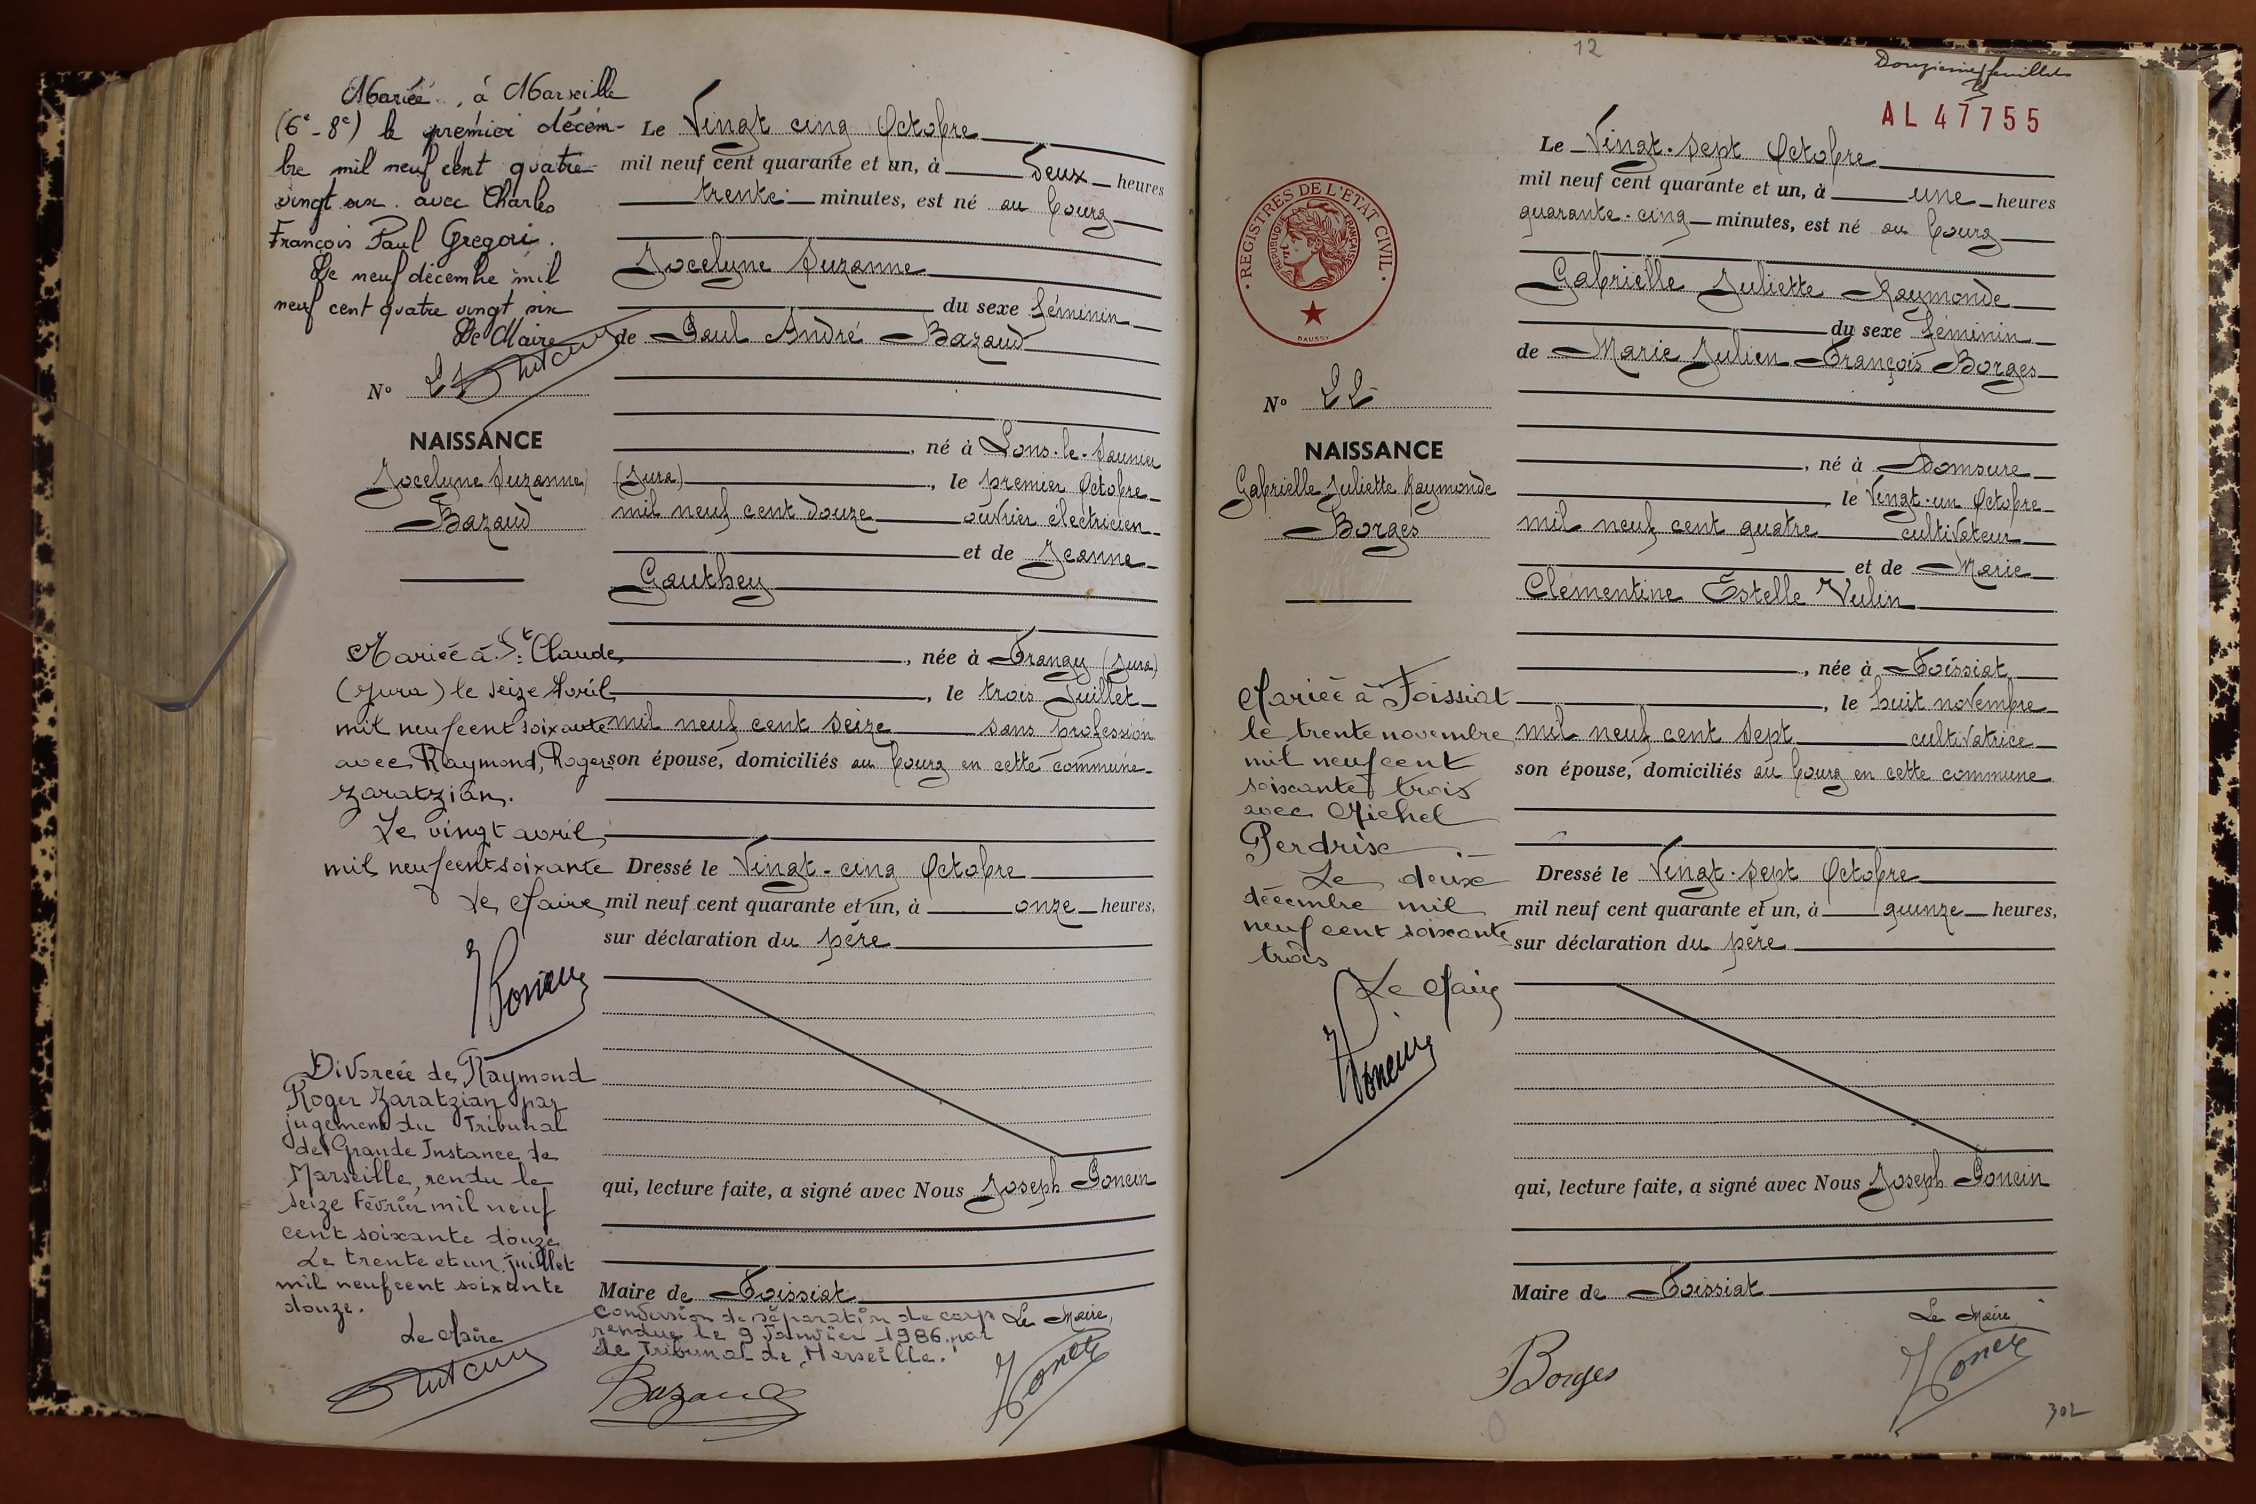 Mariée, à Marseille
(6e-8e) le premier décem-
bre mil neuf cent quatre-
vingt six avec Charles
François Paul Gregori.
Le neuf décembre mil
neuf cent quatre vingt six
Le Maire
No
NAISSANCE
Jocelyne Suzanne
Bazaud
Mariée à St Claude
(Jura) le seize Avril
mil neuf cent soixante
avec Raymond, Roger
Zaratzian.
Le vingt avril
mil neuf cent soixante
Le Maire
Divorcée de Raymond
Roger Zaratzian par
jugement du Tribunal
de Grande Instance de
Marseille, rendu le
seize Février mil neuf
cent soixante douze
Le trente et un juillet
mil neuf cent soixante
douze.
Le Maire
Le Vingt cinq Octobre
mil neuf cent quarante et un, à deux heures
trente minutes, est né au bourg
Jocelyne Suzanne
du sexe féminin
de Paul André Bazaud
, né à Lons-le-Saunier
(Jura), le premier Octobre
mil neuf cent douze ouvrier électricien
et de Jeanne
Gauthey
, née à Frangy (Jura)
, le trois Juillet
mil neuf cent seize sans profession
son épouse, domiciliés au bourg en cette commune
Dressé le Vingt-cinq Octobre
mil neuf cent quarante et un, à onze heures,
sur déclaration du père
qui, lecture faite, a signé avec Nous Joseph Poncin
Maire de Foissiat
Conversion de séparation de corps
rendue le 9 Janvier 1986 par
le Tribunal de Marseille.
Le Maire,
Bazaud
12
Douzième feuillet
AL 47755
REGISTRES DE L'ETAT CIVIL
REPUBLIQUE FRANÇAISE
DAUSSY
No 22
NAISSANCE
Gabrielle Juliette Raymonde
Borges
Mariée à Foissiat
le trente novembre
mil neuf cent
soixante trois
avec Michel
Perdrix
Le deux
décembre mil
neuf cent soixante
trois
Le Maire
Le Vingt-sept Octobre
mil neuf cent quarante et un, à une heures
quarante-cinq minutes, est né au bourg
Gabrielle Juliette Raymonde
du sexe féminin
de Marie Julien François Borges
, né à Domsure
le Vingt-un Octobre
mil neuf cent quatre cultivateur
et de Marie
Clémentine Estelle Vulin
, née à Foissiat
, le huit novembre
mil neuf cent sept cultivatrice
son épouse, domiciliés au bourg en cette commune
Dressé le Vingt-sept Octobre
mil neuf cent quarante et un, à quinze heures,
sur déclaration du père
qui, lecture faite, a signé avec Nous Joseph Poncin
Maire de Foissiat
Le Maire
Borges
302